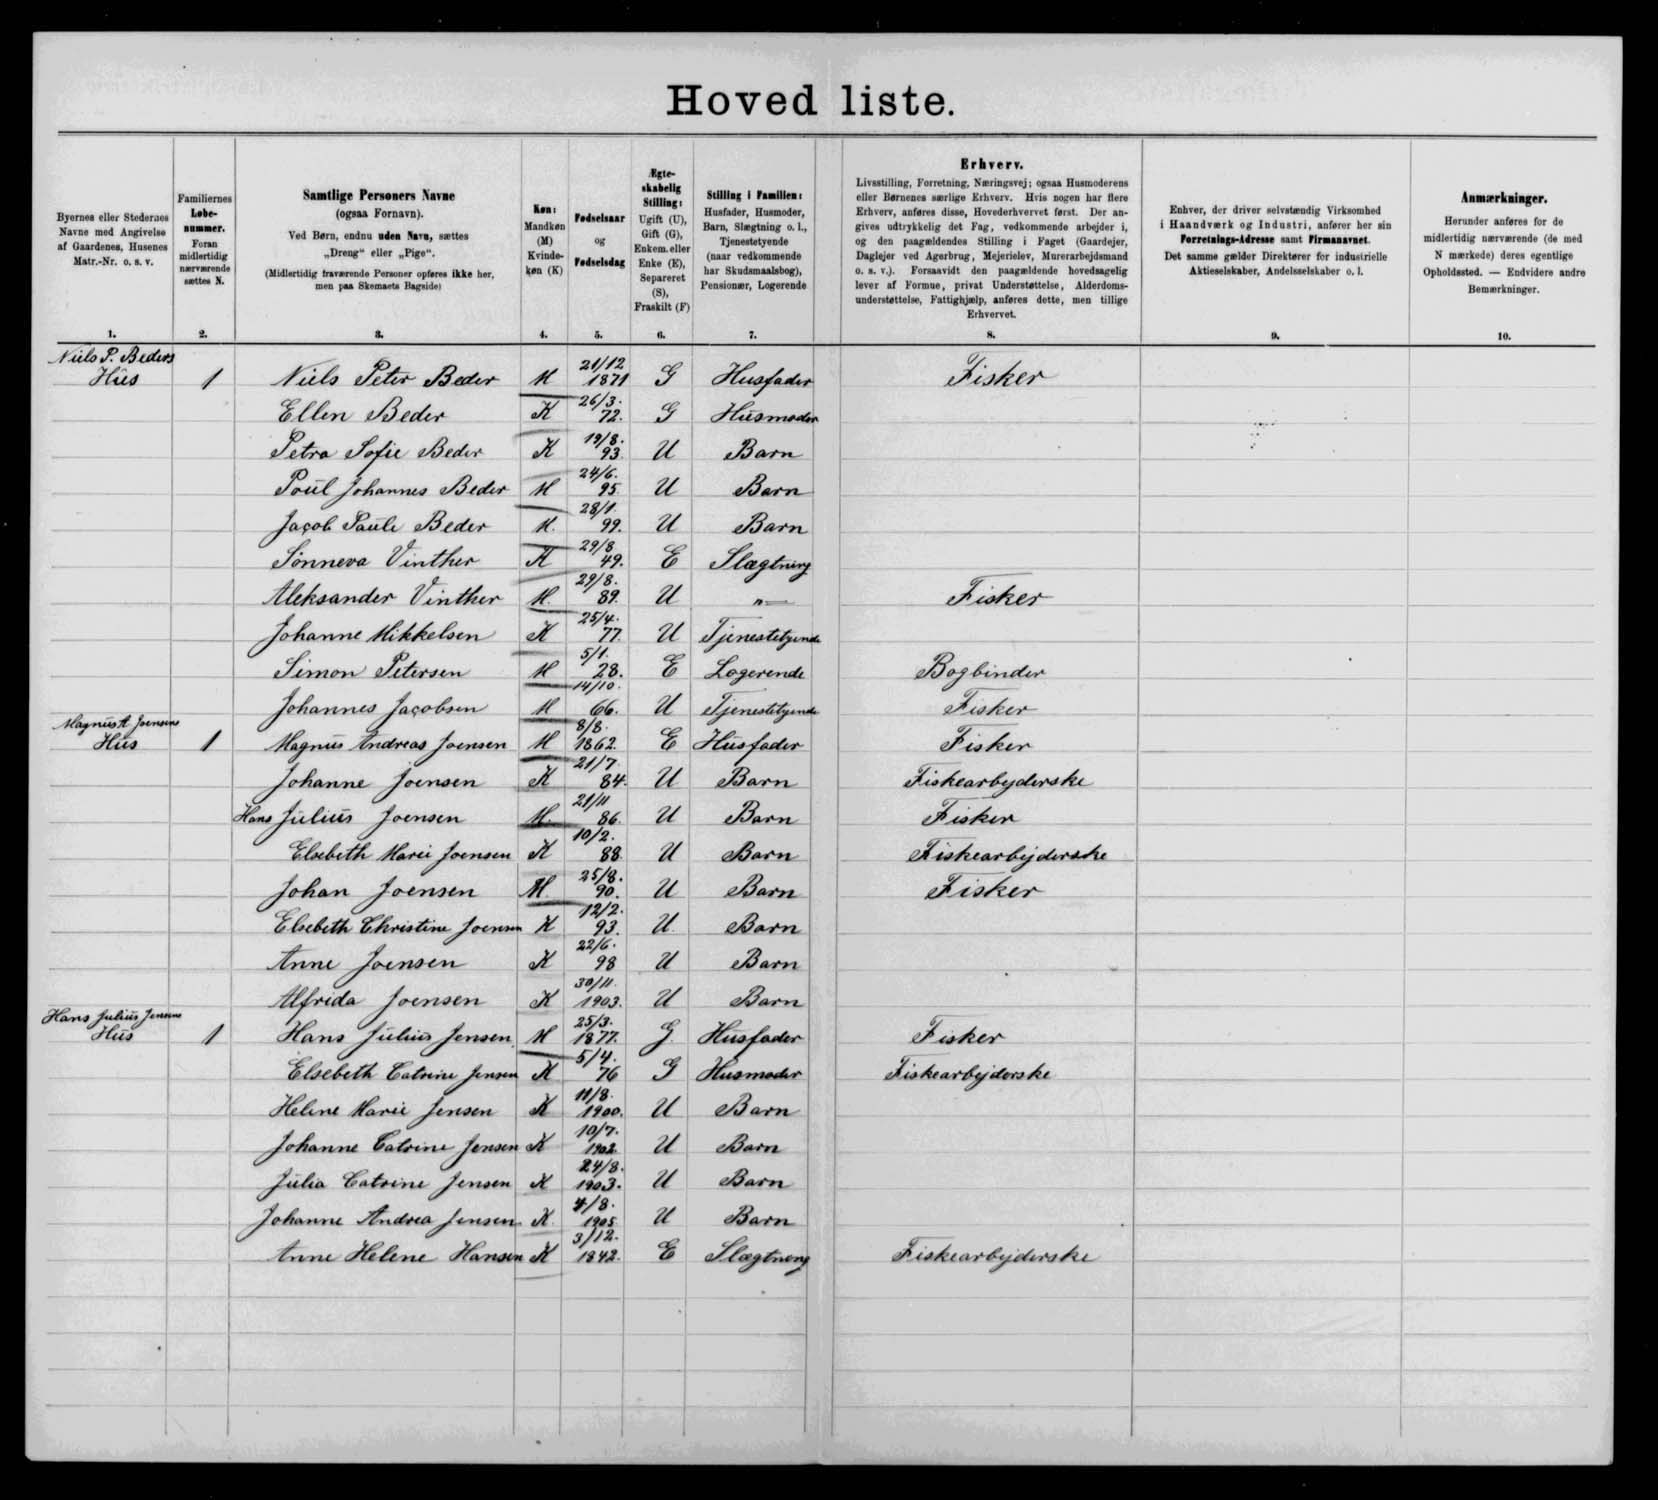 Hovedliste.
Byernes eller Stedernes
Navne med Angivelse
af Gaardenes, Husenes
Matr.-Nr. o. s. v.
1.
Familiernes
Løbe-
nummer.
Foran
midlertidig
nærværende
sættes N.
2.
Samtlige Personers Navne
(ogsaa Fornavn).
Ved Børn, endnu uden Navn, sættes
„Dreng“ eller „Pige“.
(Midlertidig fraværende Personer opføres ikke her,
men paa Skemaets Bagside)
3.
Køn:
Mandkøn
(M)
Kvinde-
køn (K)
4.
Fødselsaar
og
Fødselsdag
5.
Ægte-
skabelig
Stilling:
Ugift (U),
Gift (G),
Enkem. eller
Enke (E),
Separeret
(S),
Fraskilt (F)
6.
Stilling i Familien:
Husfader, Husmoder,
Barn, Slægtning o. l.,
Tjenestetyende
(naar vedkommende
har Skudsmaalsbog),
Pensionær, Logerende
7.
Erhverv.
Livsstilling, Forretning, Næringsvej; ogsaa Husmoderens
eller Børnenes særlige Erhverv. Hvis nogen har flere
Erhverv, anføres disse, Hovederhvervet først. Der an-
gives udtrykkelig det Fag, vedkommende arbejder i,
og den paagældendes Stilling i Faget (Gaardejer,
Daglejer ved Agerbrug, Mejerielev, Murerarbejdsmand
o. s. v.). Forsaavidt den paagældende hovedsagelig
lever af Formue, privat Understøttelse, Alderdoms-
understøttelse, Fattighjælp, anføres dette, men tillige
Erhvervet.
8.
Enhver, der driver selvstændig Virksomhed
i Haandværk og Industri, anfører her sin
Forretnings-Adresse samt Firmanavnet.
Det samme gælder Direktører for industrielle
Aktieselskaber, Andelsselskaber o. l.
9.
Anmærkninger.
Herunder anføres for de
midlertidig nærværende (de med
N mærkede) deres egentlige
Opholdssted. — Endvidere andre
Bemærkninger.
10.
Niels P. Beders
Hus 1 Niels Peter Beder M 21/12 1871 G Husfader Fisker
Ellen Beder K 26/3. 72. G Husmoder
Petra Sofie Beder K 19/8. 93. U Barn
Poul Johannes Beder M 24/6. 95. U Barn
Jacob Paule Beder M. 28/1. 99. U Barn
Sønneva Vinther K 29/8 49. E Slægtning
Aleksander Vinther M. 29/8. 89. U „— Fisker
Johanne Mikkelsen K 25/4. 77. U Tjenestetyende
Simon Petersen M 5/1. 28. E Logerende Bogbinder
Johannes Jacobsen M 14/10. 66. U Tjenestetyende Fisker
Magnus A Joensens
Hus 1 Magnus Andreas Joensen M 8/8. 1862. E Husfader Fisker
Johanne Joensen K 21/7. 84. U Barn Fiskearbejderske
Hans Julius Joensen M. 21/11 86. U Barn Fisker
Elsebeth Marie Joensen K 10/2. 88. U Barn Fiskearbejderske
Johan Joensen M. 25/8. 90. U Barn Fisker
Elsebeth Christine Joensen K 12/2. 93. U. Barn
Anne Joensen K 22/6. 98 U Barn
Alfrida Joensen K 30/11. 1903. U Barn
Hans Julius Jensens
Hus 1 Hans Julius Jensen. M 25/3. 1877. G. Husfader Fisker
Elsebeth Catrine Jensen K 5/4. 76 G Husmoder Fiskearbejderske
Helene Marie Jensen K 11/8. 1900. U Barn
Johanne Catrine Jensen K 10/7. 1902. U Barn
Julia Catrine Jensen K 24/8. 1903. U Barn
Johanne Andrea Jensen K. 4/8. 1905. U Barn
Anne Helene Hansen K 3/12. 1842. E Slægtning Fiskearbejderske